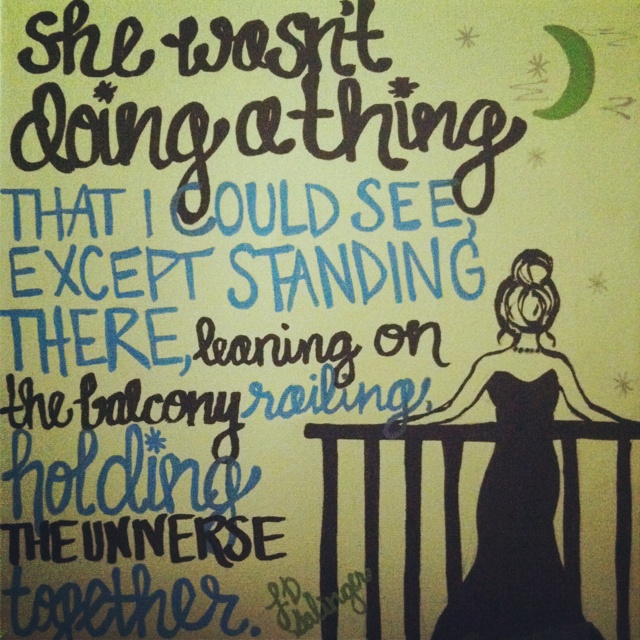 she wasn't
doing a thing
THAT I COULD SEE,
EXCEPT STANDING
THERE, leaning on
the balcony railing,
holding
THE UNIVERSE
together.
JD
Salinger